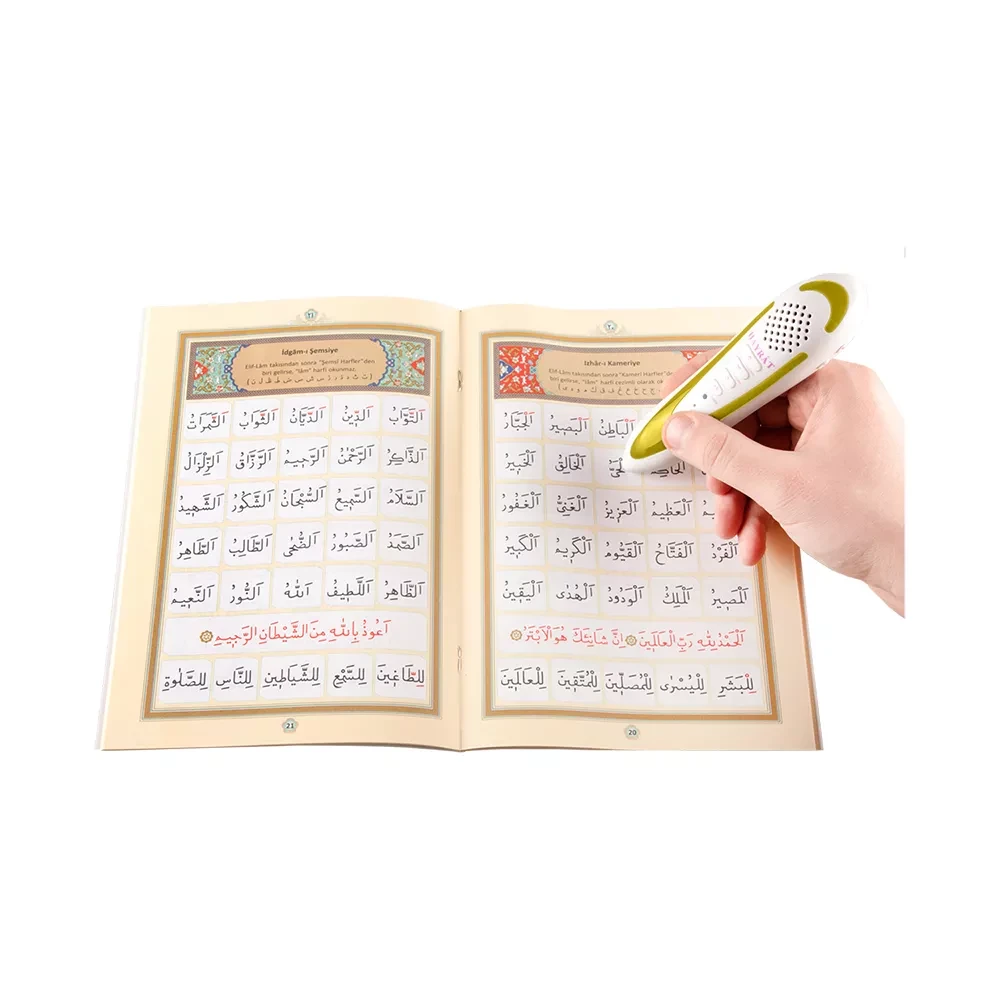 ٢٠
Izhâr-ı Kameriye
Elif-Lâm takısından sonra "Kameri Harfler"den
biri gelirse, "lâm" harfi cezimli olarak
اَلْبَاطِنُ اَلْبَصِيرُ اَلْجَبَّارُ
اَلْخَالِقُ اَلْخَبِيرُ
اَلْعَظِيمُ اَلْعَزِيزُ اَلْغَنِيُّ اَلْغَفُورُ
اَلْفَرْدُ اَلْفَتَّاحُ اَلْقَيُّومُ اَلْكَرِيمُ اَلْكَبِيرُ
اَلْمَصِيرُ اَلْمَلِكُ اَلْوَدُودُ اَلْهُدٰى اَلْيَقِينُ
اَلْحَمْدُ لِلّٰهِ رَبِّ الْعَالَمِينَ ۞ اِنَّ شَانِئَكَ هُوَ الْاَبْتَرُ ۞
لِلْبَشَرِ لِلْيُسْرٰى لِلْمُصَلِّينَ لِلْمُتَّقِينَ لِلْعَالَمِينَ
20
٢١
İdgâm-ı Şemsiye
Elif-Lâm takısından sonra "Şemsî Harfler"den
biri gelirse, "lâm" harfi okunmaz.
( ت ث د ذ ر ز س ش ص ض ط ظ ل ن )
اَلتَّوَّابُ اَلدِّينُ اَلدَّيَّانُ اَلثَّوَابُ اَلثَّمَرَاتُ
اَلذَّاكِرُ اَلرَّحْمٰنُ اَلرَّحِيمُ اَلرَّزَّاقُ اَلزِّلْزَالُ
اَلسَّلَامُ اَلسَّمِيعُ اَلسُّبْحَانُ اَلشَّكُورُ اَلشَّهِيدُ
اَلصَّمَدُ اَلصَّبُورُ اَلضُّحٰى اَلطَّالِبُ اَلطَّاهِرُ
اَلظَّاهِرُ اَللَّطِيفُ اَللّٰهُ اَلنُّورُ اَلنَّعِيمُ
اَعُوذُ بِاللّٰهِ مِنَ الشَّيْطَانِ الرَّجِيمِ ۞
لِلطَّاغِينَ لِلسَّمْعِ لِلشَّيَاطِينِ لِلنَّاسِ لِلصَّلٰوةِ
21
HAYRAT